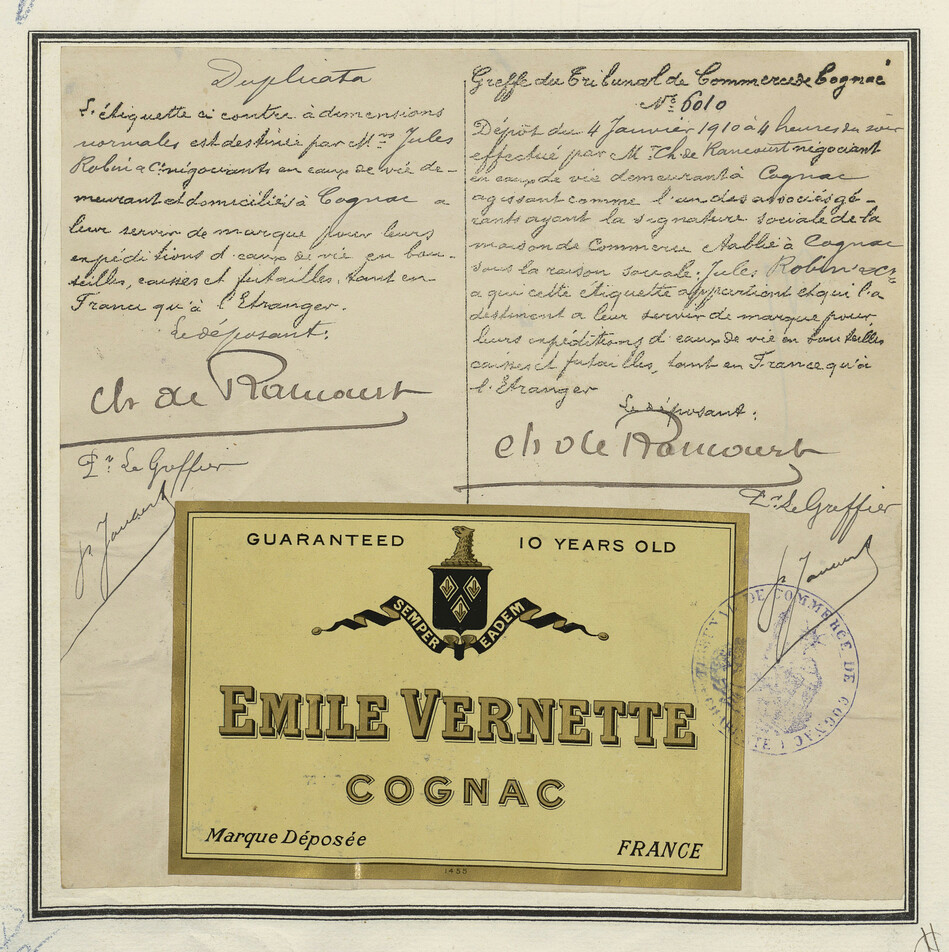 Duplicata
L'étiquette ci contre à dimensions
normales est destinée par Mrs Jules
Robin & Cie négociants en eaux de vie de-
meurant et domiciliés à Cognac a
leur servir de marque pour leurs
expéditions d'eaux de vie en bou-
teilles, caisses et futailles, tant en
France qu'à l'Etranger.
Le déposant:
Ch de Rancourt
Pr Le Greffier
Greffe du Tribunal de Commerce de Cognac
No: 6010
Dépôt du 4 Janvier 1910 à 4 heures du soir
effectué par M. Ch. de Rancourt négociant
en eaux de vie demeurant à Cognac
agissant comme l'un des associés gé-
rants ayant la signature sociale de la
maison de Commerce etablie à Cognac
sous la raison sociale: Jules Robin & Cie
a qui cette étiquette appartient et qui l'a
destinent a leur servir de marque pour
leurs expéditions d'eaux de vie en bouteilles
caisses et futailles, tant en France qu'à
l'Etranger
Le déposant:
Ch de Rancourt
Pr Le Greffier
GUARANTEED 10 YEARS OLD
SEMPER EADEM
EMILE VERNETTE
COGNAC
Marque Déposée FRANCE
1455
TRIBUNAL DE COMMERCE DE COGNAC